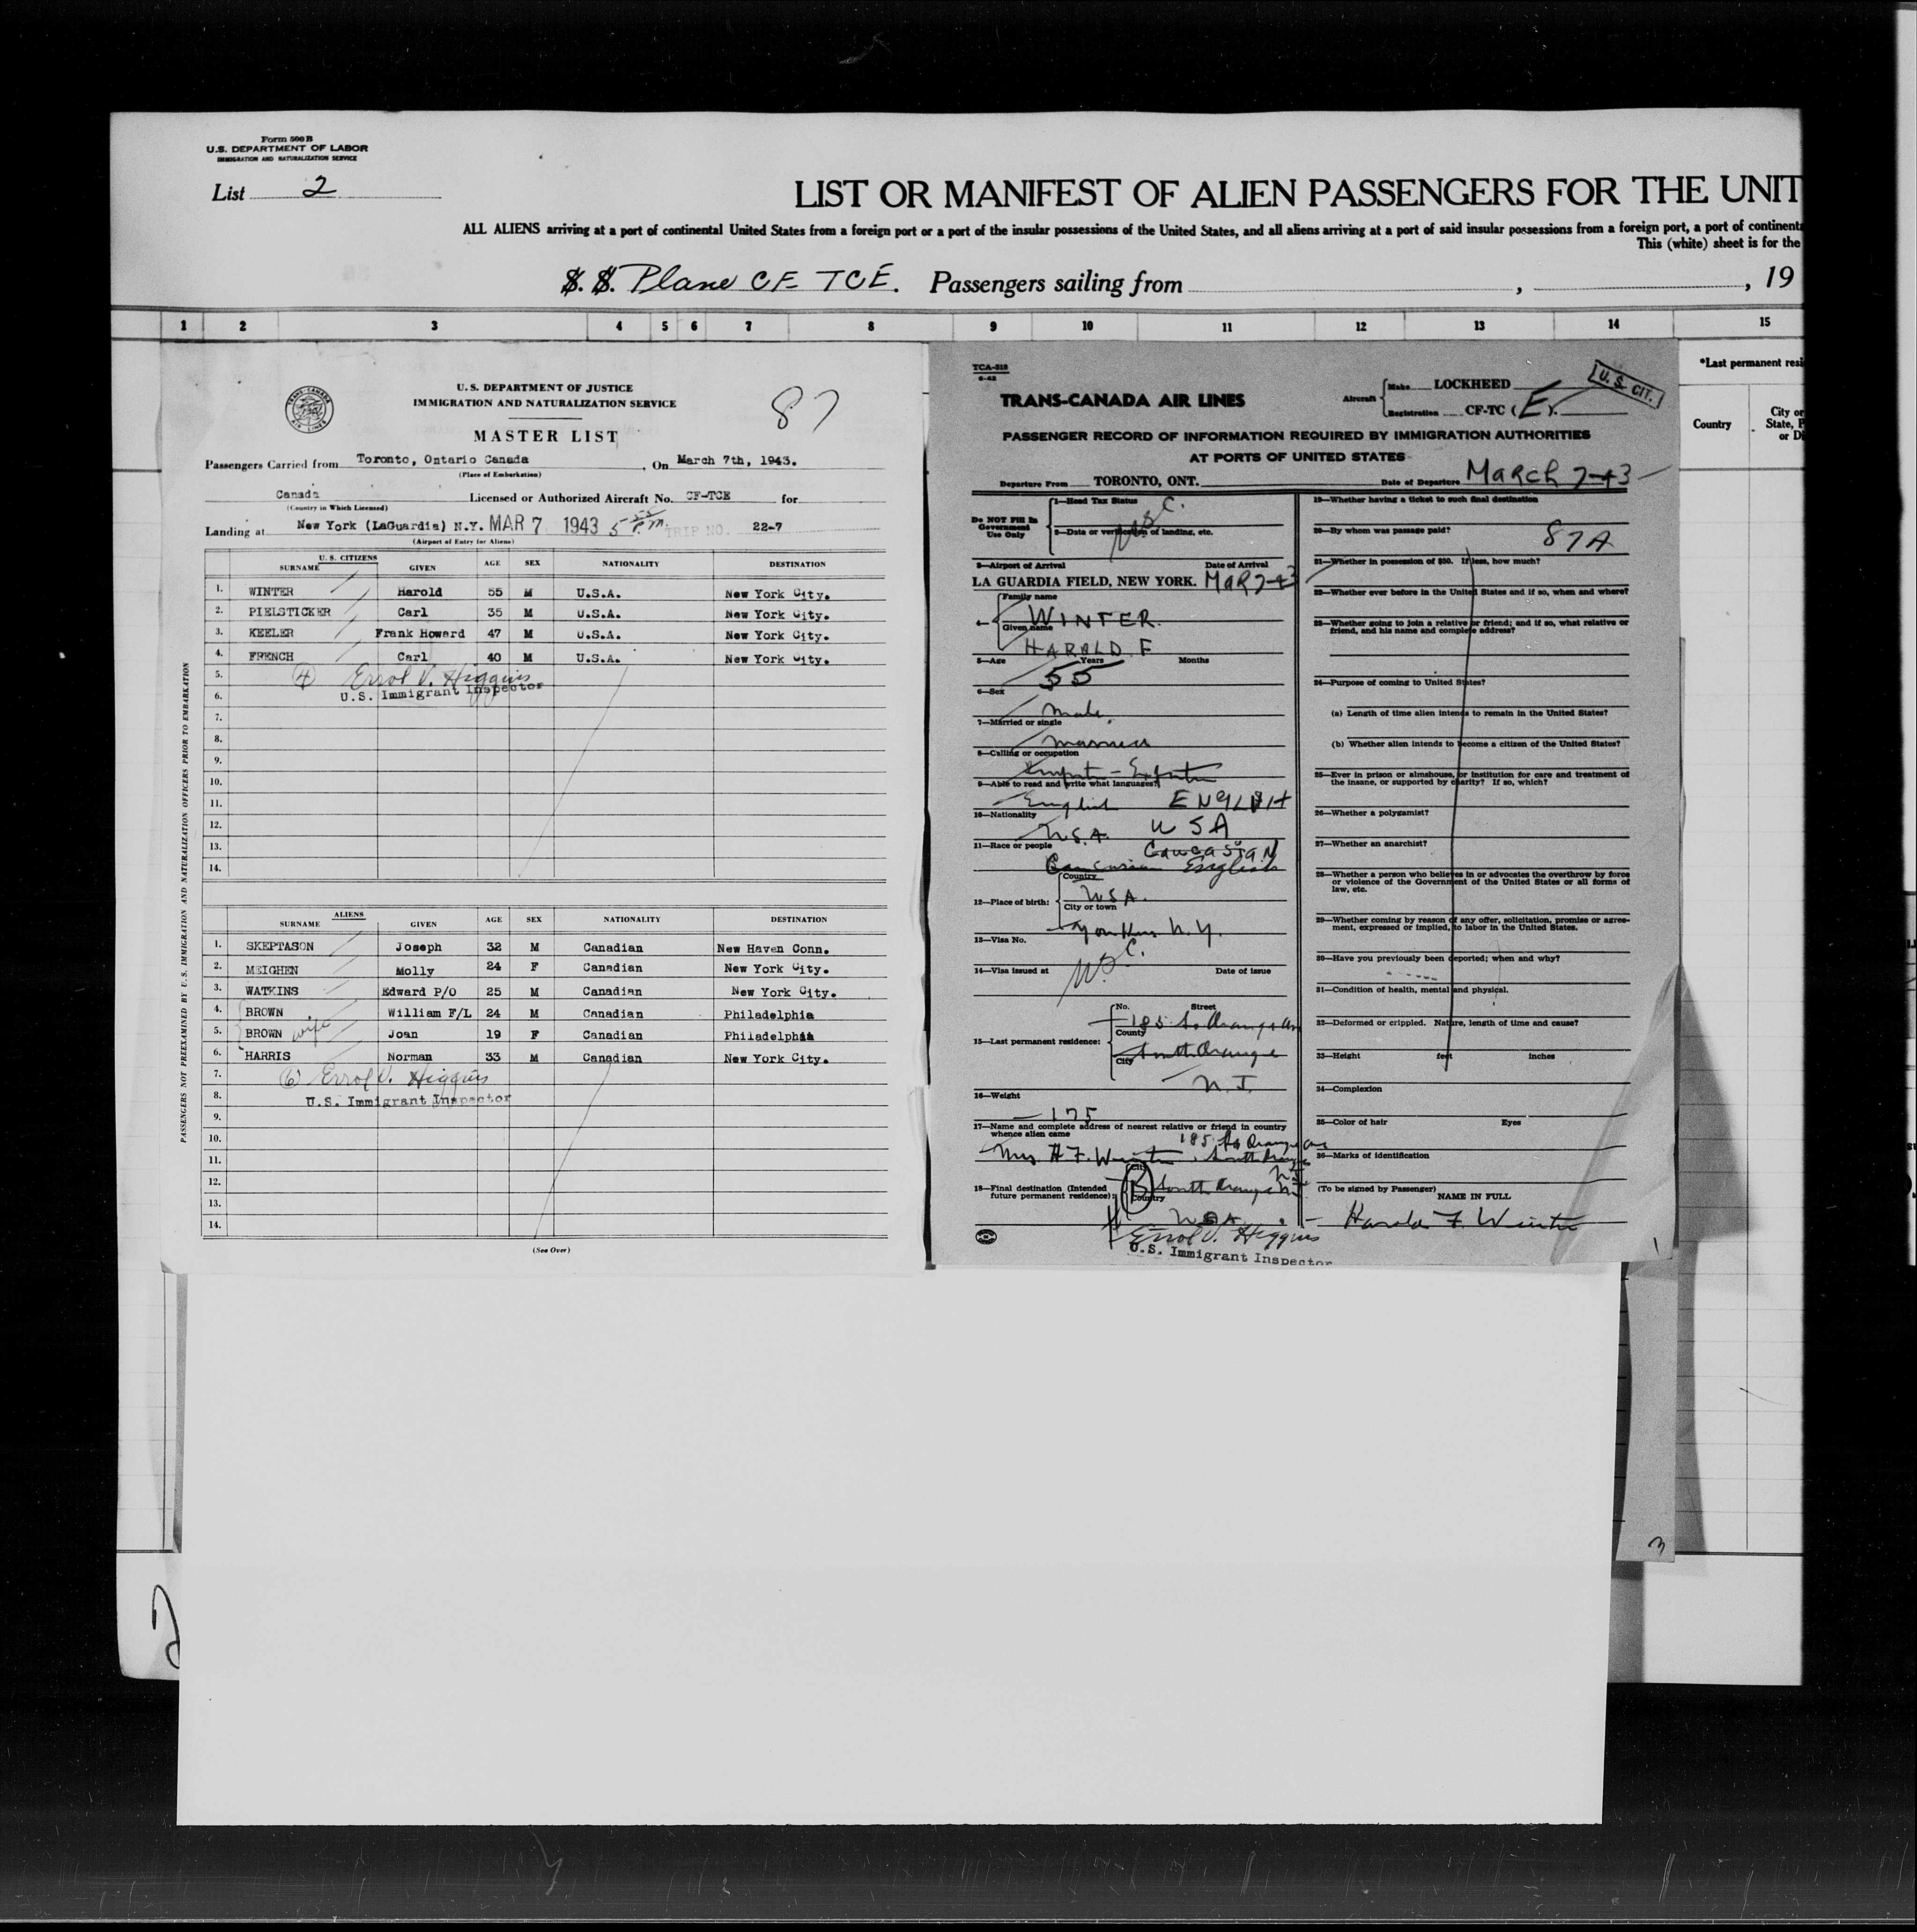 Form 500 B
U.S. DEPARTMENT OF LABOR
IMMIGRATION AND NATURALIZATION SERVICE
List 2
LIST OR MANIFEST OF ALIEN PASSENGERS FOR THE UNIT
ALL ALIENS arriving at a port of continental United States from a foreign port or a port of the insular possessions of the United States, and all aliens arriving at a port of said insular possessions from a foreign port, a port of continent
This (white) sheet is for the
S. S. Plane CF- TCE. Passengers sailing from , , 19
1 2 3 4 5 6 7 8 9 10 11 12 13 14 15
*Last permanent resi
Country
City or
State, P
or Di
TRANS-CANADA AIR LINES
U. S. DEPARTMENT OF JUSTICE
IMMIGRATION AND NATURALIZATION SERVICE
87
MASTER LIST
Passengers Carried from Toronto, Ontario Canada , On March 7th, 1943.
(Place of Embarkation)
Canada Licensed or Authorized Aircraft No. CF-TCE for
(Country in Which Licensed)
Landing at New York (LaGuardia) N.Y. MAR 7 1943 5 55 P.m. TRIP NO. 22-7
(Airport of Entry for Aliens)
U. S. CITIZENS
SURNAME GIVEN AGE SEX NATIONALITY DESTINATION
1. WINTER Harold 55 M U.S.A. New York City.
2. PIELSTICKER Carl 35 M U.S.A. New York City.
3. KEELER Frank Howard 47 M U.S.A. New York City.
4. FRENCH Carl 40 M U.S.A. New York City.
5. 4 Errol V. Higgins
6. U.S. Immigrant Inspector
7.
8.
9.
10.
11.
12.
13.
14.
ALIENS
SURNAME GIVEN AGE SEX NATIONALITY DESTINATION
1. SKEPTASON Joseph 32 M Canadian New Haven Conn.
2. MEIGHEN Molly 24 F Canadian New York City.
3. WATKINS Edward P/O 25 M Canadian New York City.
4. BROWN William F/L 24 M Canadian Philadelphia
5. BROWN wife Joan 19 F Canadian Philadelphia
6. HARRIS Norman 33 M Canadian New York City.
7. 6 Errol V. Higgins
8. U.S. Immigrant Inspector
9.
10.
11.
12.
13.
14.
(See Over)
PASSENGERS NOT PREEXAMINED BY U. S. IMMIGRATION AND NATURALIZATION OFFICERS PRIOR TO EMBARKATION
TCA-318
6-42
TRANS-CANADA AIR LINES
Aircraft Make LOCKHEED
Registration CF-TC ( E ).
U. S. CIT.
PASSENGER RECORD OF INFORMATION REQUIRED BY IMMIGRATION AUTHORITIES
AT PORTS OF UNITED STATES
Departure From TORONTO, ONT. Date of Departure MARCH 7-43
Do NOT Fill In
Government
Use Only
1—Head Tax Status
USC.
2—Date or verification of landing, etc.
3—Airport of Arrival Date of Arrival
LA GUARDIA FIELD, NEW YORK. MAR 7-43
4 Family name
WINTER.
Given name
HAROLD F
5—Age Years Months
55
6—Sex
male.
7—Married or single
married
8—Calling or occupation
9—Able to read and write what languages?
English ENGLISH
10—Nationality
U.S.A. U S A
11—Race or people
CAUCASIAN
Caucasian English
12—Place of birth: Country
USA.
City or town
Yonkers N.Y.
13—Visa No.
USC.
14—Visa issued at Date of issue
15—Last permanent residence: No. Street
185 So Orange Av
County
South Orange
City
N. J.
16—Weight
175
17—Name and complete address of nearest relative or friend in country
whence alien came
185 So Orange Ave
Mrs H F. Winter, South Orange
NJ
18—Final destination (Intended
future permanent residence):
City
B South Orange NJ
Country
USA.
Errol V. Higgins
U.S. Immigrant Inspector
19—Whether having a ticket to such final destination
20—By whom was passage paid?
87A
21—Whether in possession of $50. If less, how much?
22—Whether ever before in the United States and if so, when and where?
23—Whether going to join a relative or friend; and if so, what relative or
friend, and his name and complete address?
24—Purpose of coming to United States?
(a) Length of time alien intends to remain in the United States?
(b) Whether alien intends to become a citizen of the United States?
25—Ever in prison or almshouse, or institution for care and treatment of
the insane, or supported by charity? If so, which?
26—Whether a polygamist?
27—Whether an anarchist?
28—Whether a person who believes in or advocates the overthrow by force
or violence of the Government of the United States or all forms of
law, etc.
29—Whether coming by reason of any offer, solicitation, promise or agree-
ment, expressed or implied, to labor in the United States.
30—Have you previously been deported; when and why?
31—Condition of health, mental and physical.
32—Deformed or crippled. Nature, length of time and cause?
33—Height feet inches
34—Complexion
35—Color of hair Eyes
36—Marks of identification
(To be signed by Passenger)
NAME IN FULL
Harold F. Winter
1
3
2